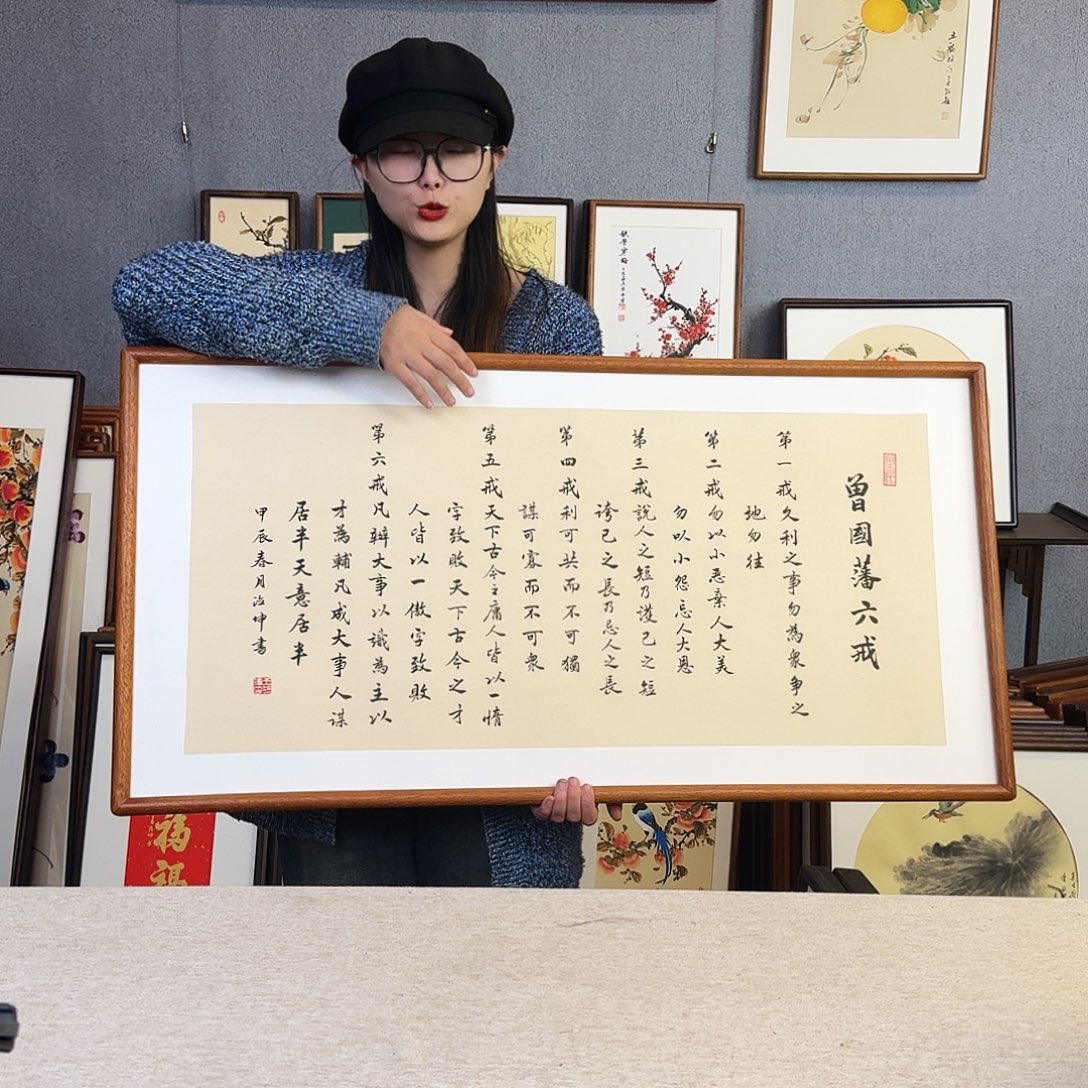 曾國藩六戒
第一戒久利之事勿為衆爭之
地勿往
第二戒勿以小惡棄人大美
勿以小怨忘人大恩
第三戒說人之短乃護己之短
誇己之長乃忌人之長
第四戒利可共而不可獨
謀可寡而不可衆
第五戒天下古今之庸人皆以一惰
字致敗天下古今之才
人皆以一傲字致敗
第六戒凡辦大事以識為主以
才為輔凡成大事人謀
居半天意居半
甲辰春月治坤書
鐵骨紅梅
福